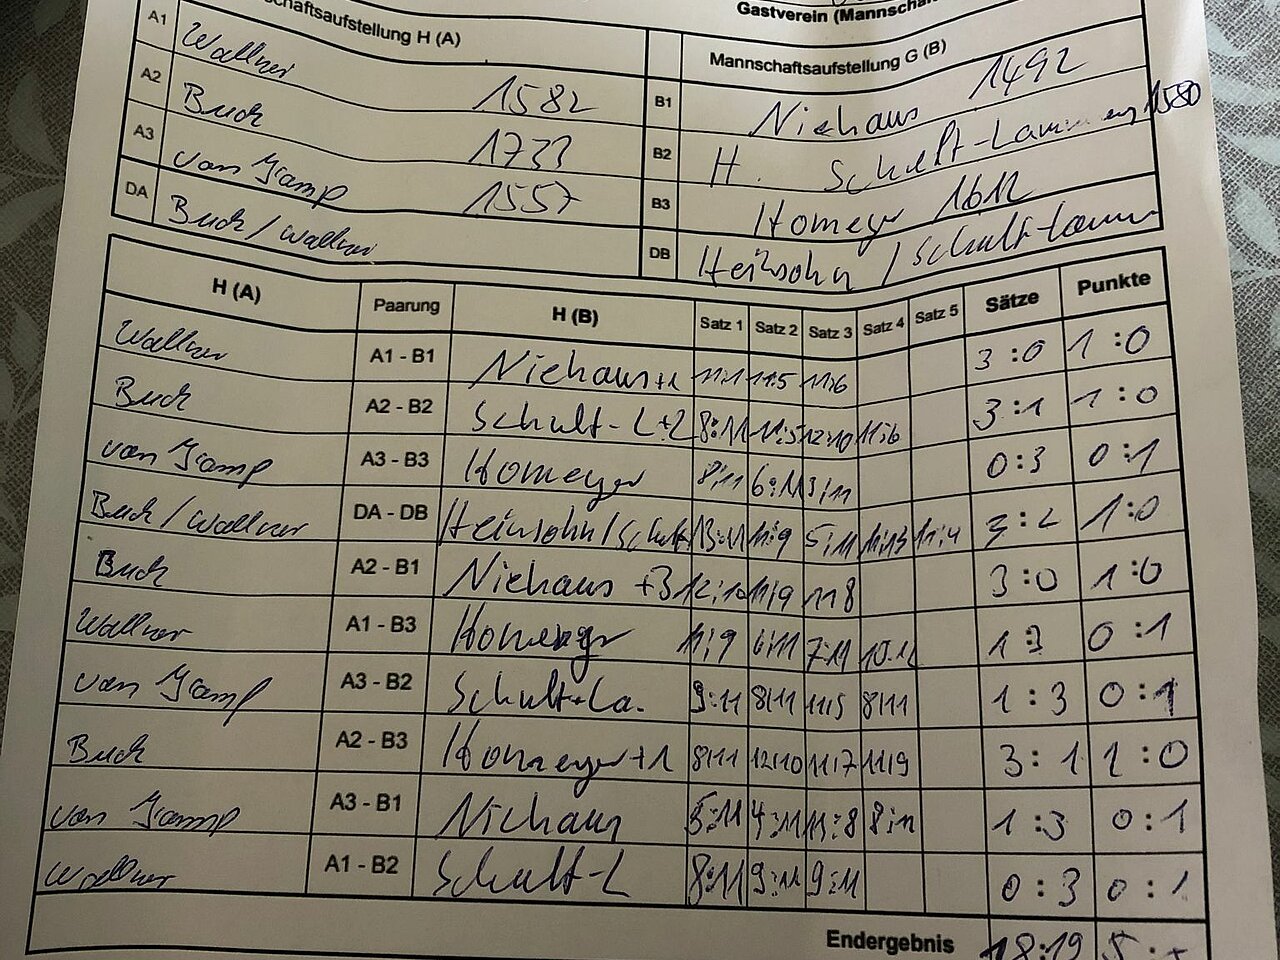 Gastverein (Mannscha
chaftsaufstellung H (A)
Mannschaftsaufstellung G (B)
A1 Wallner 1582 B1 Niehaus 1492
A2 Buck 1733 B2 H. Schult-Lammers 1580
A3 van Kamp 1557 B3 Homeyer 1612
DA Buck / Wallner DB Heinsohn / Schult-Lamm
H (A) Paarung H (B) Satz 1 Satz 2 Satz 3 Satz 4 Satz 5 Sätze Punkte
Wallner A1 - B1 Niehaus +1 11:1 11:5 11:6 3:0 1:0
Buck A2 - B2 Schult-L +2 8:11 11:5 12:10 11:6 3:1 1:0
van Kamp A3 - B3 Homeyer 8:11 6:11 3:11 0:3 0:1
Buck / Wallner DA - DB Heinsohn / Schult 13:11 11:9 5:11 11:13 11:4 3:2 1:0
Buck A2 - B1 Niehaus +3 12:10 11:9 11 8 3:0 1:0
Wallner A1 - B3 Homeyer 11:9 6:11 7:11 10:12 1:3 0:1
van Kamp A3 - B2 Schult-La. 9:11 8:11 11:5 8:11 1:3 0:1
Buck A2 - B3 Homeyer +1 8:11 12:10 11:7 11:9 3:1 1:0
van Kamp A3 - B1 Niehaus 5:11 4:11 11:8 8:11 1:3 0:1
Wallner A1 - B2 Schult-L 8:11 9:11 9:11 0:3 0:1
Endergebnis 18:19 5: